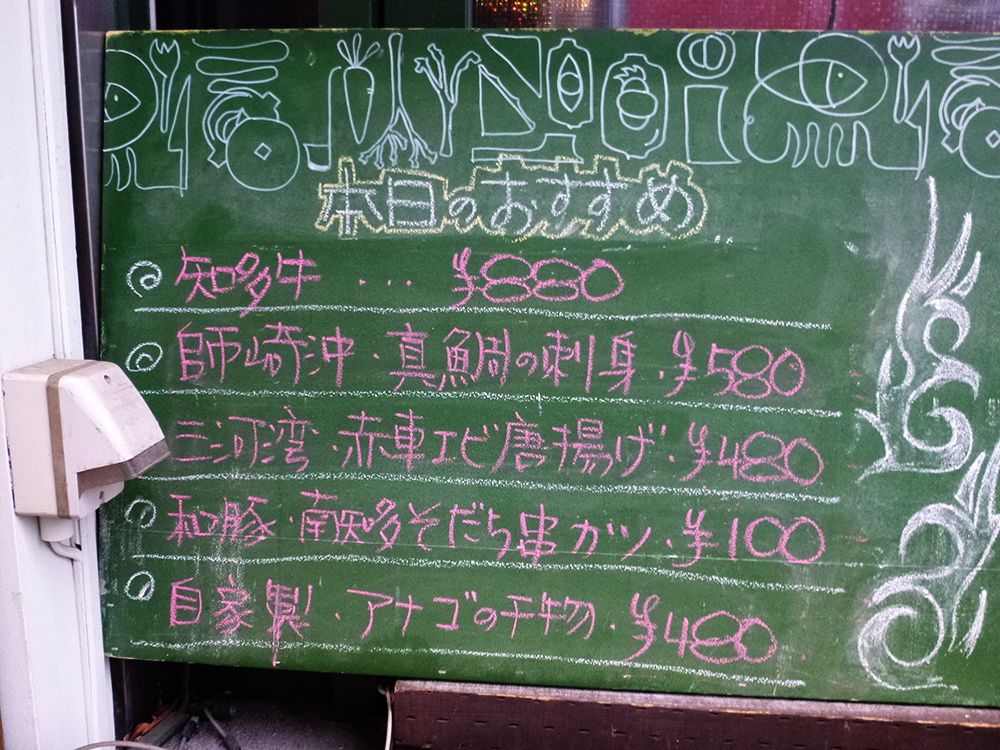 本日のおすすめ
知多牛 ... ¥880
師崎沖・真鯛の刺身・¥580
三河湾・赤車エビ唐揚げ・¥480
和豚・南知多そだち串カツ・¥100
自家製・アナゴの干物・¥480